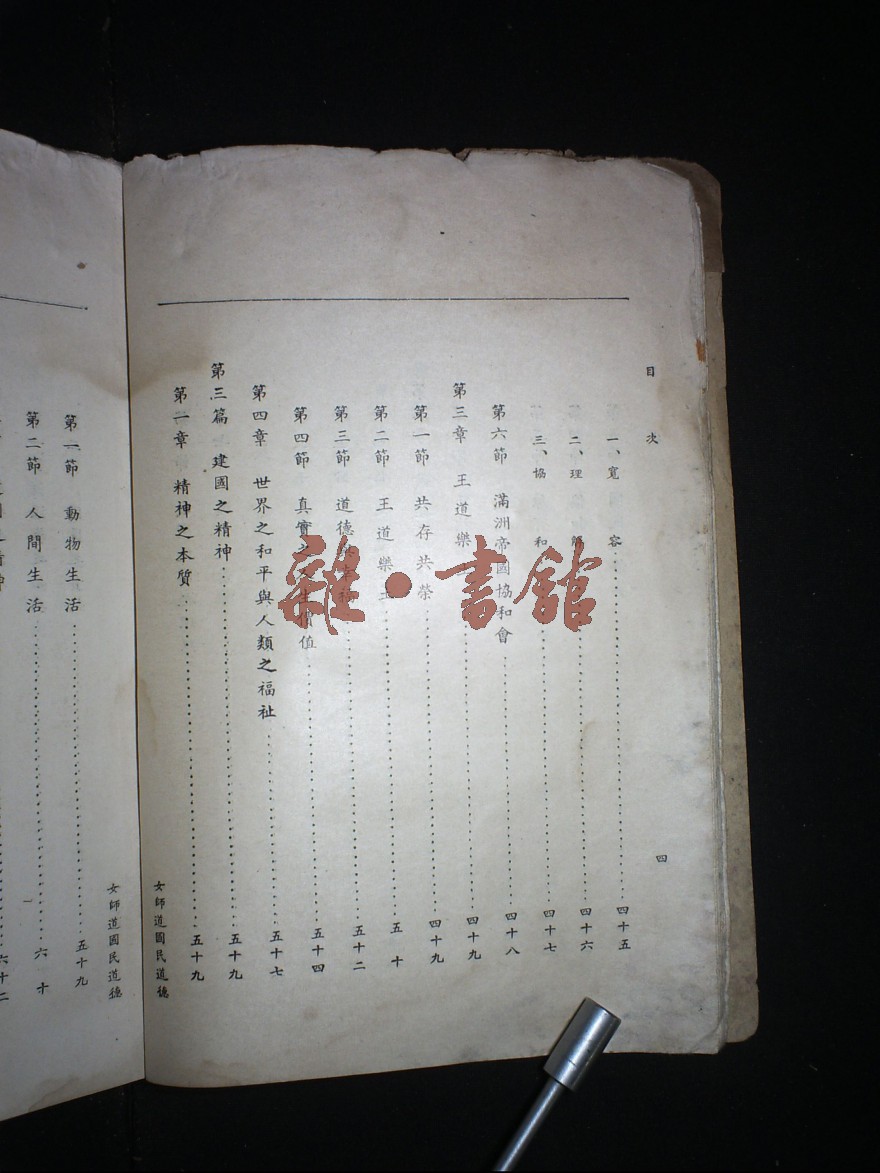 目次
四
一、寬容⋯⋯四十五
二、理解⋯⋯四十六
三、協和⋯⋯四十七
第六節 滿洲帝國協和會⋯⋯四十八
第三章 王道樂⋯⋯四十九
第一節 共存共榮⋯⋯四十九
第二節 王道樂土⋯⋯五十
第三節 道德⋯⋯五十二
第四節 真實之⋯⋯值⋯⋯五十四
第四章 世界之和平與人類之福祉⋯⋯五十七
第三篇 建國之精神⋯⋯五十九
第一章 精神之本質⋯⋯五十九
女師道國民道德
女師道國民道德
第一節 動物生活⋯⋯五十九
第二節 人間生活⋯⋯六十
六十二
雜·書館